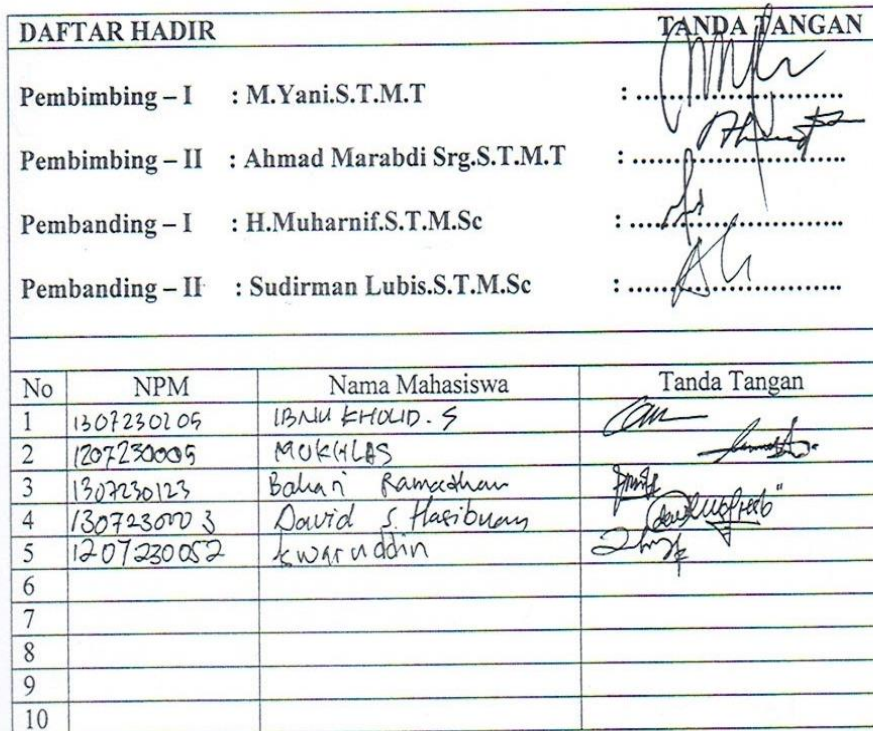 DAFTAR HADIR TANDA TANGAN
Pembimbing – I : M.Yani.S.T.M.T : ..........................
Pembimbing – II : Ahmad Marabdi Srg.S.T.M.T : ..........................
Pembanding – I : H.Muharnif.S.T.M.Sc : ..........................
Pembanding – II : Sudirman Lubis.S.T.M.Sc : ..........................
No NPM Nama Mahasiswa Tanda Tangan
1 IBNU KHOLID . S
2 1207230005 MUKHLAS
3 1307230123 Bahari Ramadhan
4 1307230003 David S. Hasibuan
5 1207230052
6
7
8
9
10